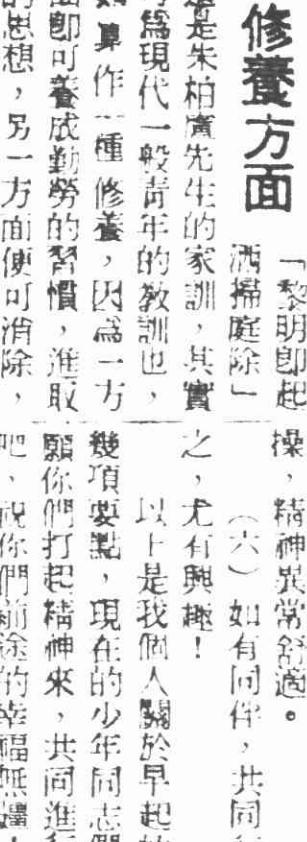 修養方面
「黎明卽起
洒掃庭除」
是朱柏廬先生的家訓，其實
爲現代一般靑年的敎訓也，
算作一種修養，因爲一方
面卽可養成勤勞的習慣，進取
的思想，另一方面便可消除，
操，精神異常舒適。
（六）如有同伴，共同
之，尤有興趣！
以上是我個人關於早起
幾項要點，現在的少年同志們
願你們打起精神來，共同進
吧，祝你們前途的幸福無疆！